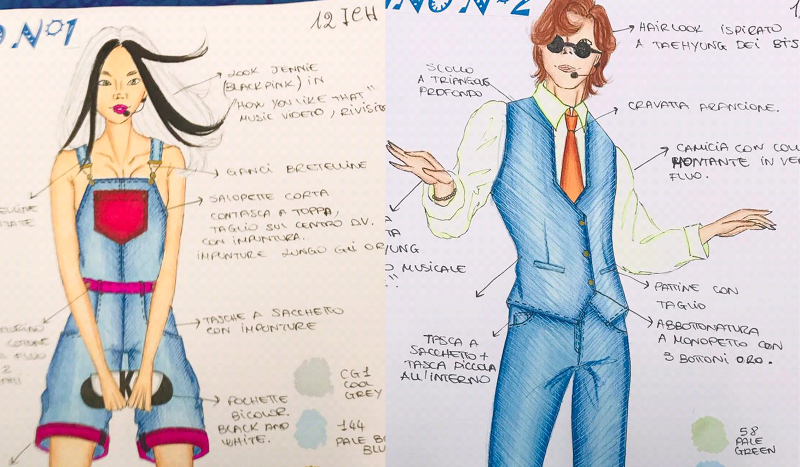 O N°1
12 ICH
LOOK JENNIE
(BLACKPINK) IN
"HOW YOU LIKE THAT"
MUSIC VIDEO, RIVISITO
GANCI BRETELLINE
SALOPETTE CORTA
CON TASCA A TOPPA,
TAGLIO SUL CENTRO D.V.
CON IMPUNTURA.
IMPUNTURE LUNGO GLI OR
TASCHE A SACCHETTO
CON IMPUNTURE
POCHETTE
BICOLOR
BLACK AND
WHITE.
CG1
COOL
GREY
144
PALE B
BLU
K
NO N°2
HAIRLOOK ISPIRATO
A TAEHYUNG DEI BTS
SCOLLO
A TRIANGOLO
PROFONDO
CRAVATTA ARANCIONE.
CAMICIA CON COLL
MONTANTE IN VER
FLUO.
TA
YUNG
O MUSICALE
PATTINE CON
TAGLIO
ABBOTTONATURA
A MONOPETTO CON
3 BOTTONI ORO.
TASCA A
SACCHETTO +
TASCA PICCOLA
ALL'INTERNO
58
PALE
GREEN